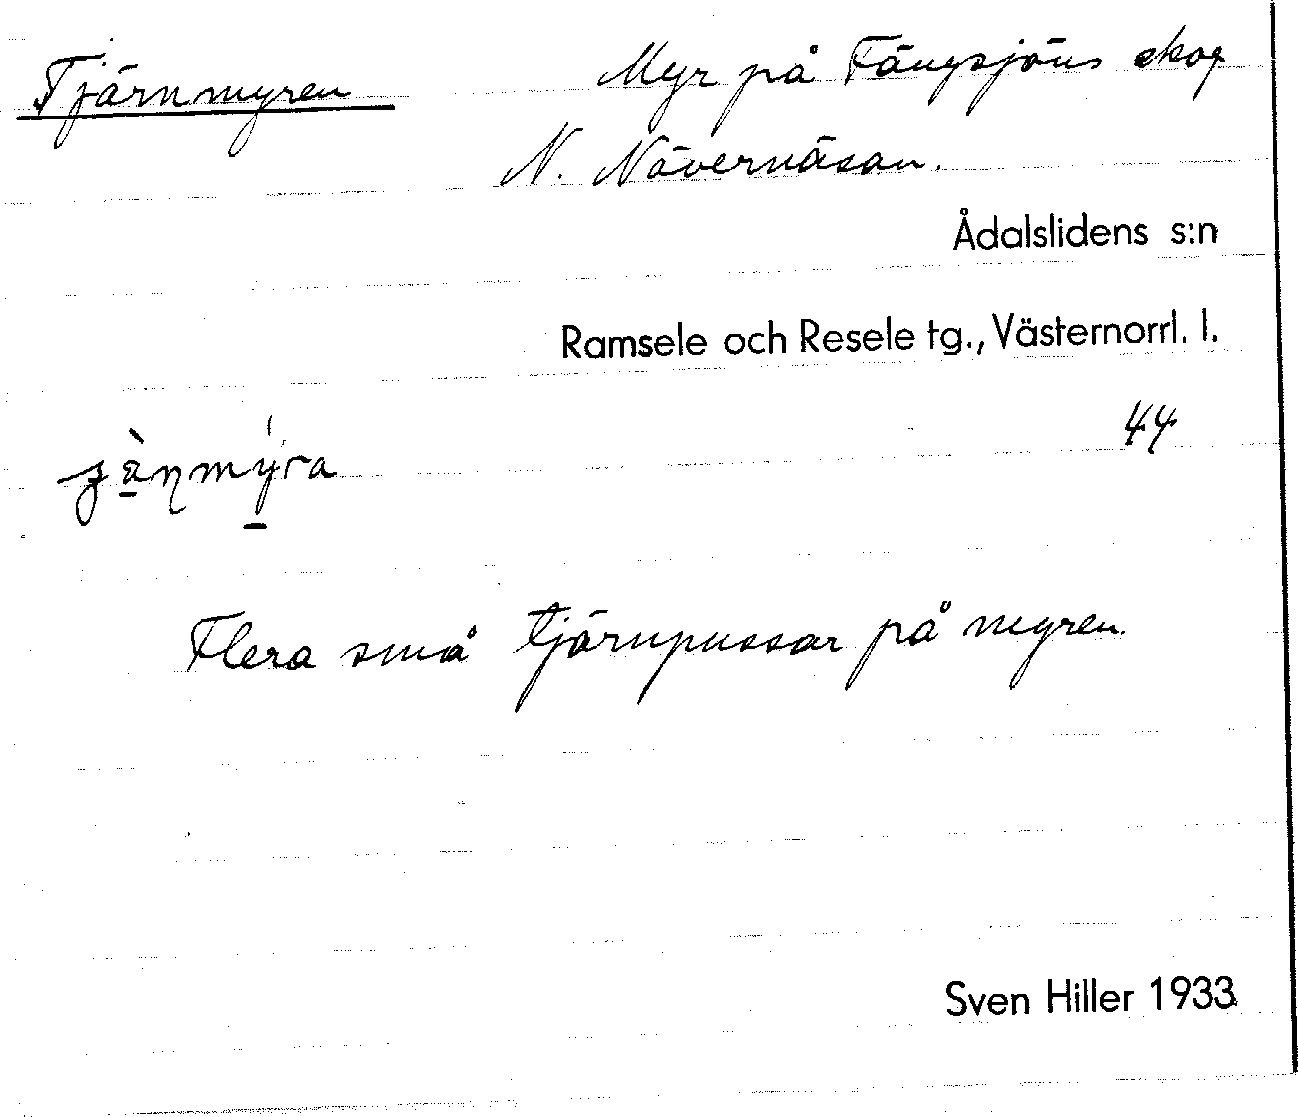 Tjärnmyren
Myr på Fängsjöns skog
N. Nävernäsan.
Ådalslidens s:n
Ramsele och Resele tg., Västernorrl. l.
44
Flera små tjärnpussar på myren
Sven Hiller 1933